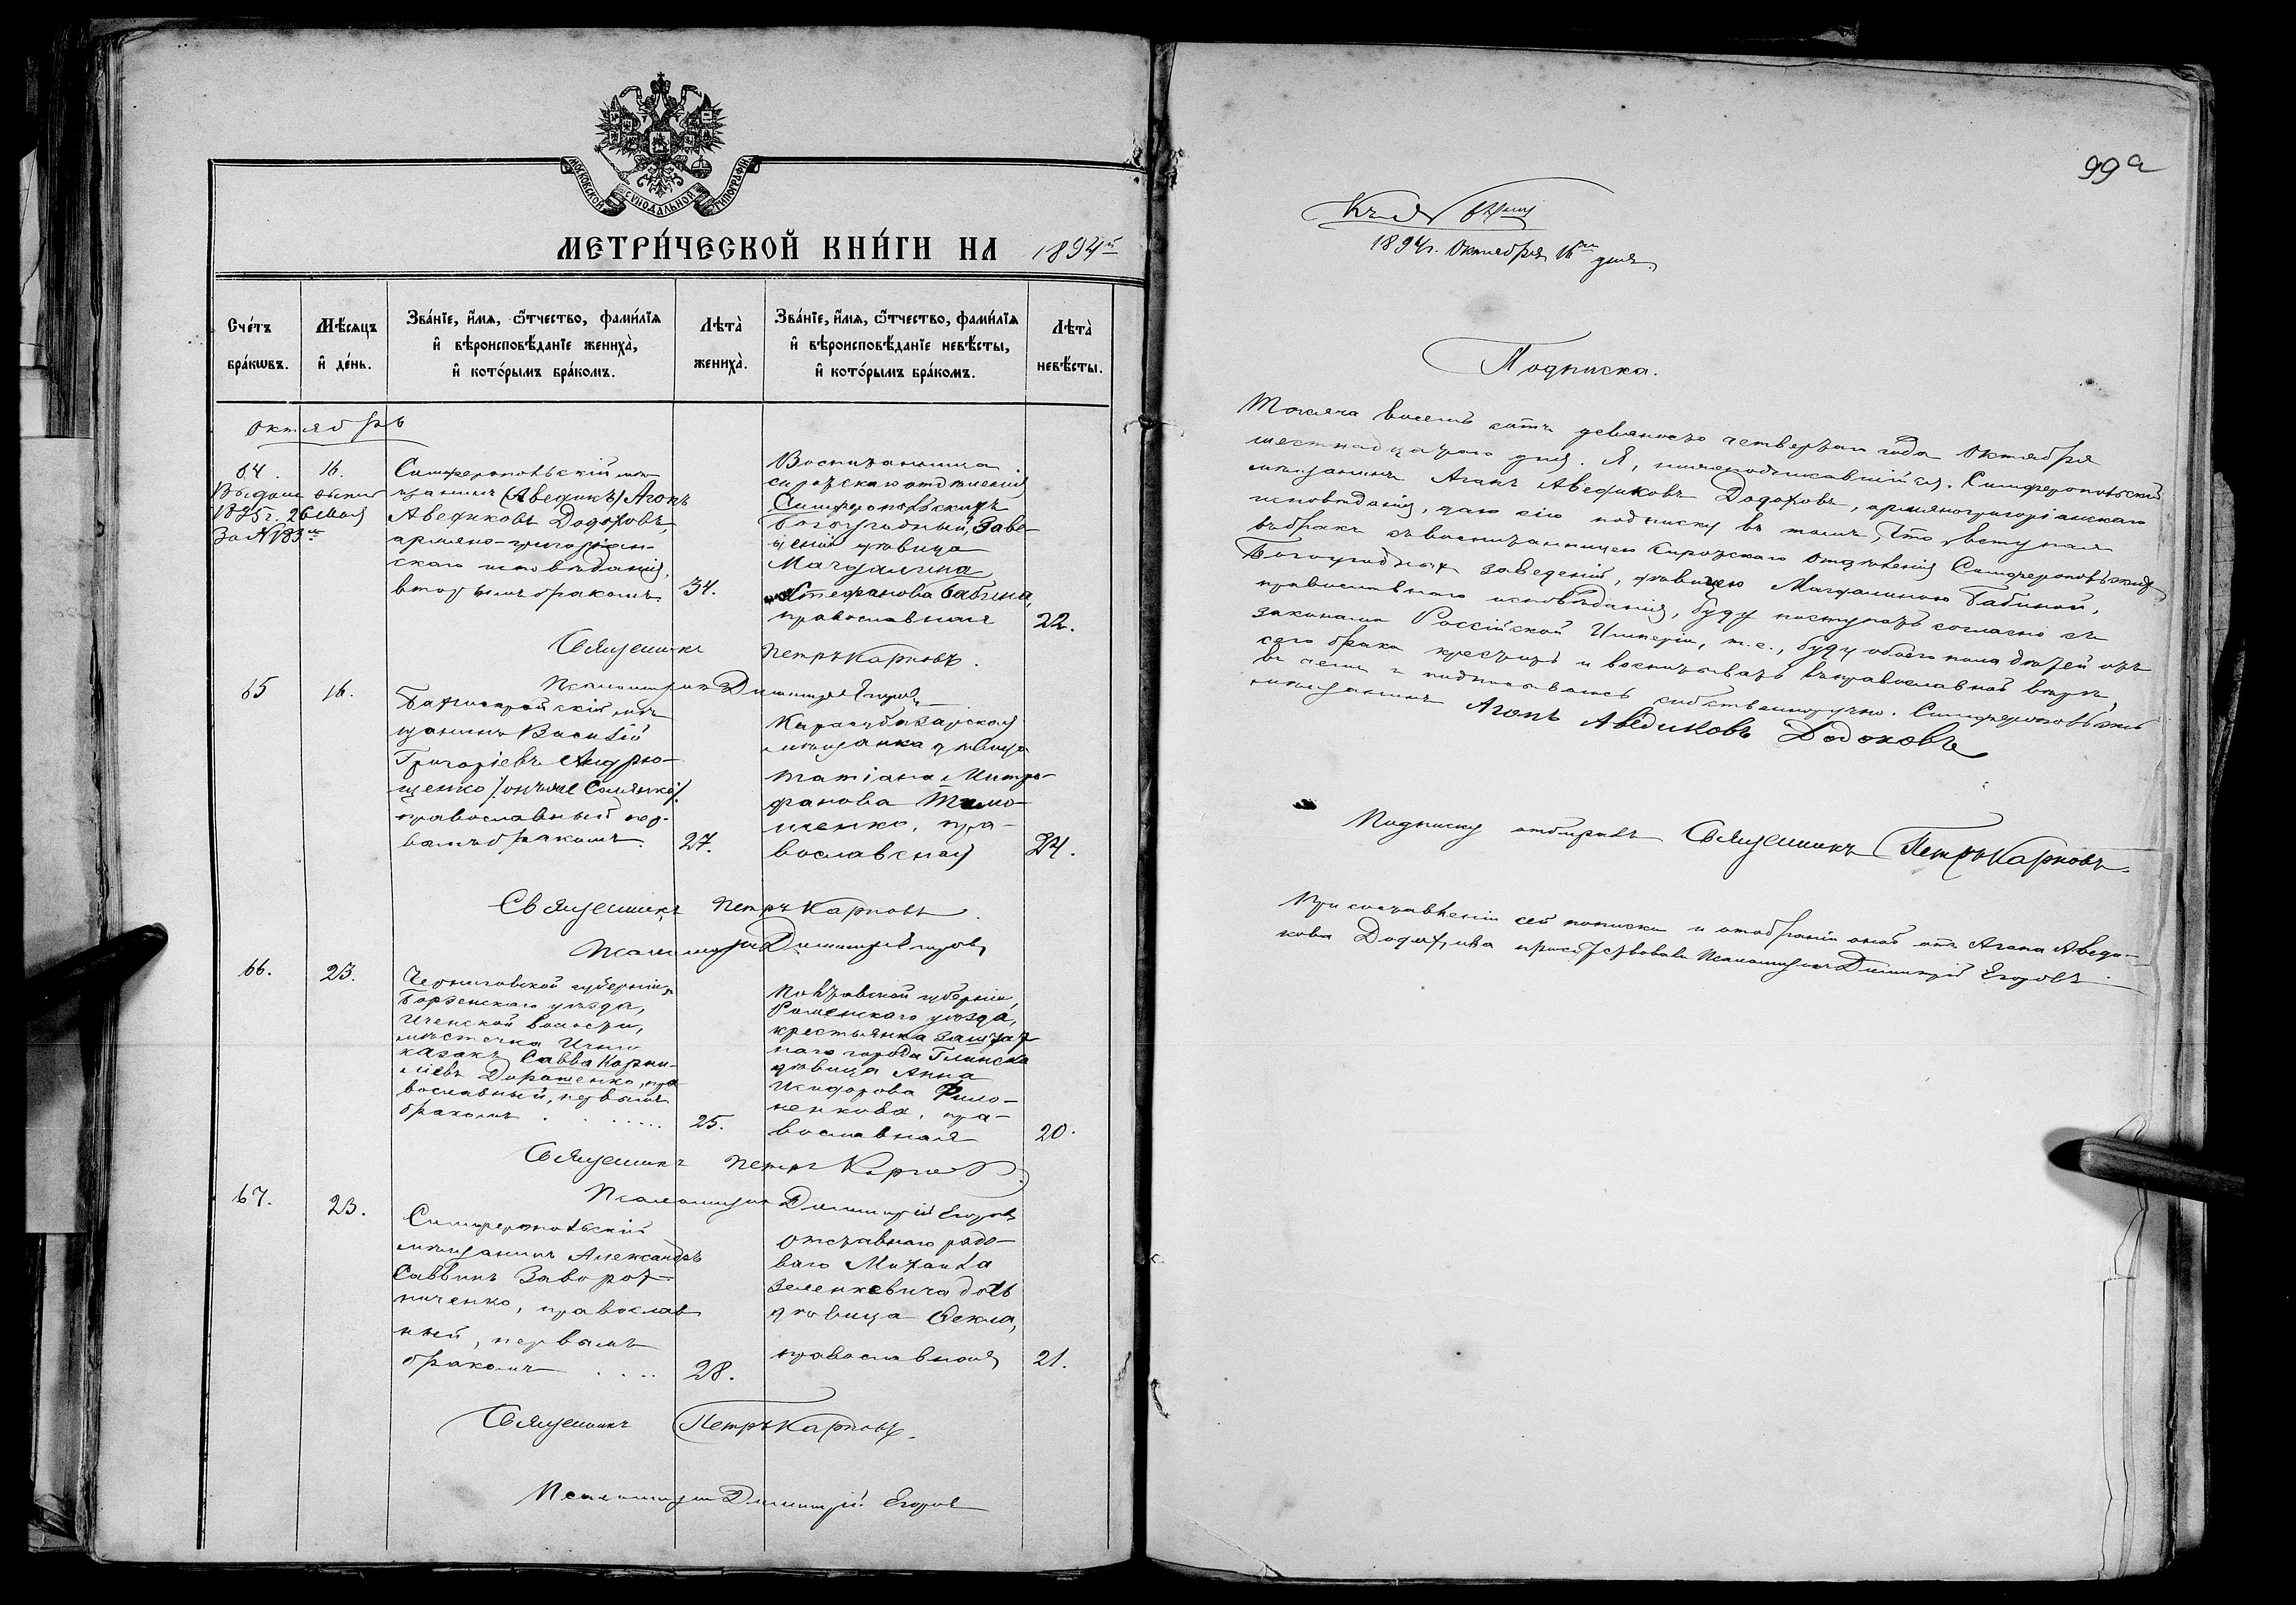 МОСКОВСКОЙ СѴНОДАЛЬНОЙ ТИПОГРАФІИ
МЕТРИ́ЧЕСКОЙ КНИ́ГИ НА 1894й
Сче́тъ бра́кωвъ.
Мѣ́сяцъ и҆ де́нь.
Зва́нїе, и҆́мѧ, ѻ҆́тчество, фами́лїѧ и҆ вѣроисповѣ́данїе жениха̀, и҆ кото́рымъ бра́комъ.
Лѣта̀ жениха̀.
Зва́нїе, и҆́мѧ, ѻ҆́тчество, фами́лїѧ и҆ вѣроисповѣ́данїе невѣ́сты, и҆ кото́рымъ бра́комъ.
Лѣта̀ невѣ́сты.
октябрь
64.
16.
1895г. 26 Мая
За № 183
Симферопольскій мѣ-
щанинъ (Аведикъ) Агопъ
Аведиковъ Додоховъ,
армяно-григоріан-
скаго исповѣданія,
вторымъ бракомъ.
34.
Воспитанница
сиротскаго отдѣленія
Симферопольскихъ
Богоугодный, Заве-
деній дѣвица
Магдалина
Стефанова Бабина,
православная
22.
Священникъ Петръ Карповъ.
Псаломщикъ Димитрій Егоровъ
65
16.
Бахчисарайскій мѣ-
щанинъ Василій
Григоріевъ Андрю-
щенко (:онъ же Солянко:)
православный пер-
вымъ бракомъ.
27.
Карасубазарская
мѣщанка дѣвица
Татіана Митро-
фанова Тимо-
шенко, пра-
вославная
24.
Священникъ Петръ Карповъ.
Псаломщикъ Димитрій Егоровъ
66.
23.
Черниговской губерніи,
Борзенскаго уѣзда,
Иченской волости,
мѣстечка Ични
казакъ Савва Корни-
ліевъ Дорошенко, пра-
вославный, первымъ
бракомъ . . . . . . .
25.
Полтавской губерніи,
Роменскаго уѣзда,
крестьянка заштат
наго города Глинска
дѣвица Анна
Исидорова Фило-
ненкова, пра-
вославная
20.
Священникъ Петръ Карповъ.
Псаломщикъ Димитрій Егоровъ
67.
23.
Симферопольскій
мѣщанинъ Александръ
Саввинъ Заворот-
ниченко, православ
ный, первымъ
бракомъ . . . .
28.
отставнаго рядо-
ваго Михаила
Зеленкевича дочь
дѣвица Ѳекла,
православная
21.
Священникъ Петръ Карповъ.
Псаломщикъ Димитрій Егоровъ
99а
1894г. Октября 16го дня.
Подписка.
Тысяча восемь сотъ девяносто четвертаго года Октября
шестнадцатаго дня. Я, нижеподписавшійся, Симферопольскій
мѣщанинъ Агопъ Аведиковъ Додоховъ, армяногригоріанскаго
исповѣданія, даю сію подписку въ томъ, что вступая
въ бракъ съ воспитанницею Сиротскаго отдѣленія Симферопольскихъ
Богоугодныхъ заведеній, дѣвицею Магдалиною Бабиной,
православнаго исповѣданія, буду поступать согласно съ
законами Россійской Имперіи, т. е., буду обоего пола дѣтей отъ
сего брака крестить и воспитывать въ православной вѣрѣ,
въ чемъ и подписываюсь собственноручно. Симферопольскій
мѣщанинъ Агопъ Аведиковъ Додоховъ
Подписку отбиралъ Священникъ Петръ Карповъ.
При составленіи сей подписки и отобраніи оной отъ Агопа Аведи-
кова Додохова присутствовалъ Псаломщикъ Димитрій Егоровъ.